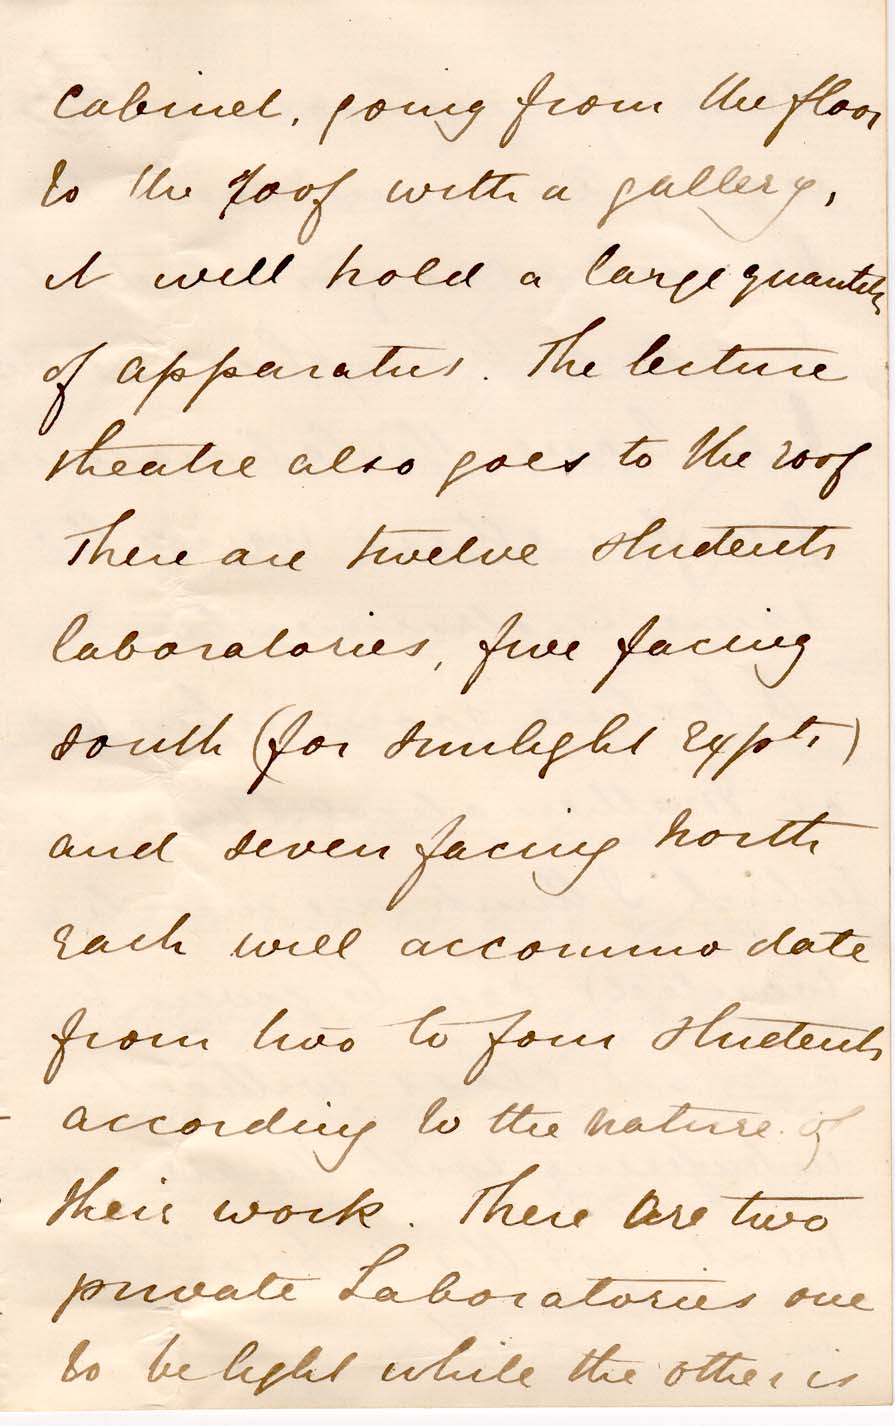 Cabinet, going from the floor
to the roof with a gallery,
it will hold a large quantity
of apparatus. The lecture
theatre also goes to the roof
There are twelve students
laboratories, five facing
south (for sunlight Expts)
and seven facing north
Each will accommodate
from two to four students
according to the nature of
their work. There are two
private Laboratories one
to be light while the other is